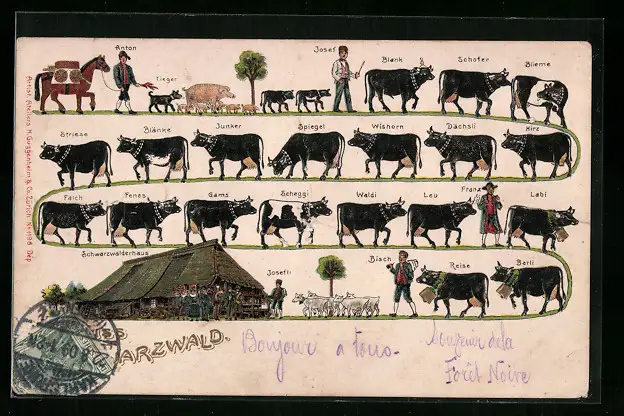 Anton
Tieger
Josef
Blank
Schofer
Blieme
Striese
Blänke
Junker
Spiegel
Wishorn
Dächsli
Hirz
Falch
Fenes
Gams
Scheggi
Waldi
Leu
Franz
Lobi
Schwarzwälderhaus
Josefli
Bisch
Reise
Barli
ARZWALD.
Bonjour a tous.
Souvenir de la
Forêt Noire